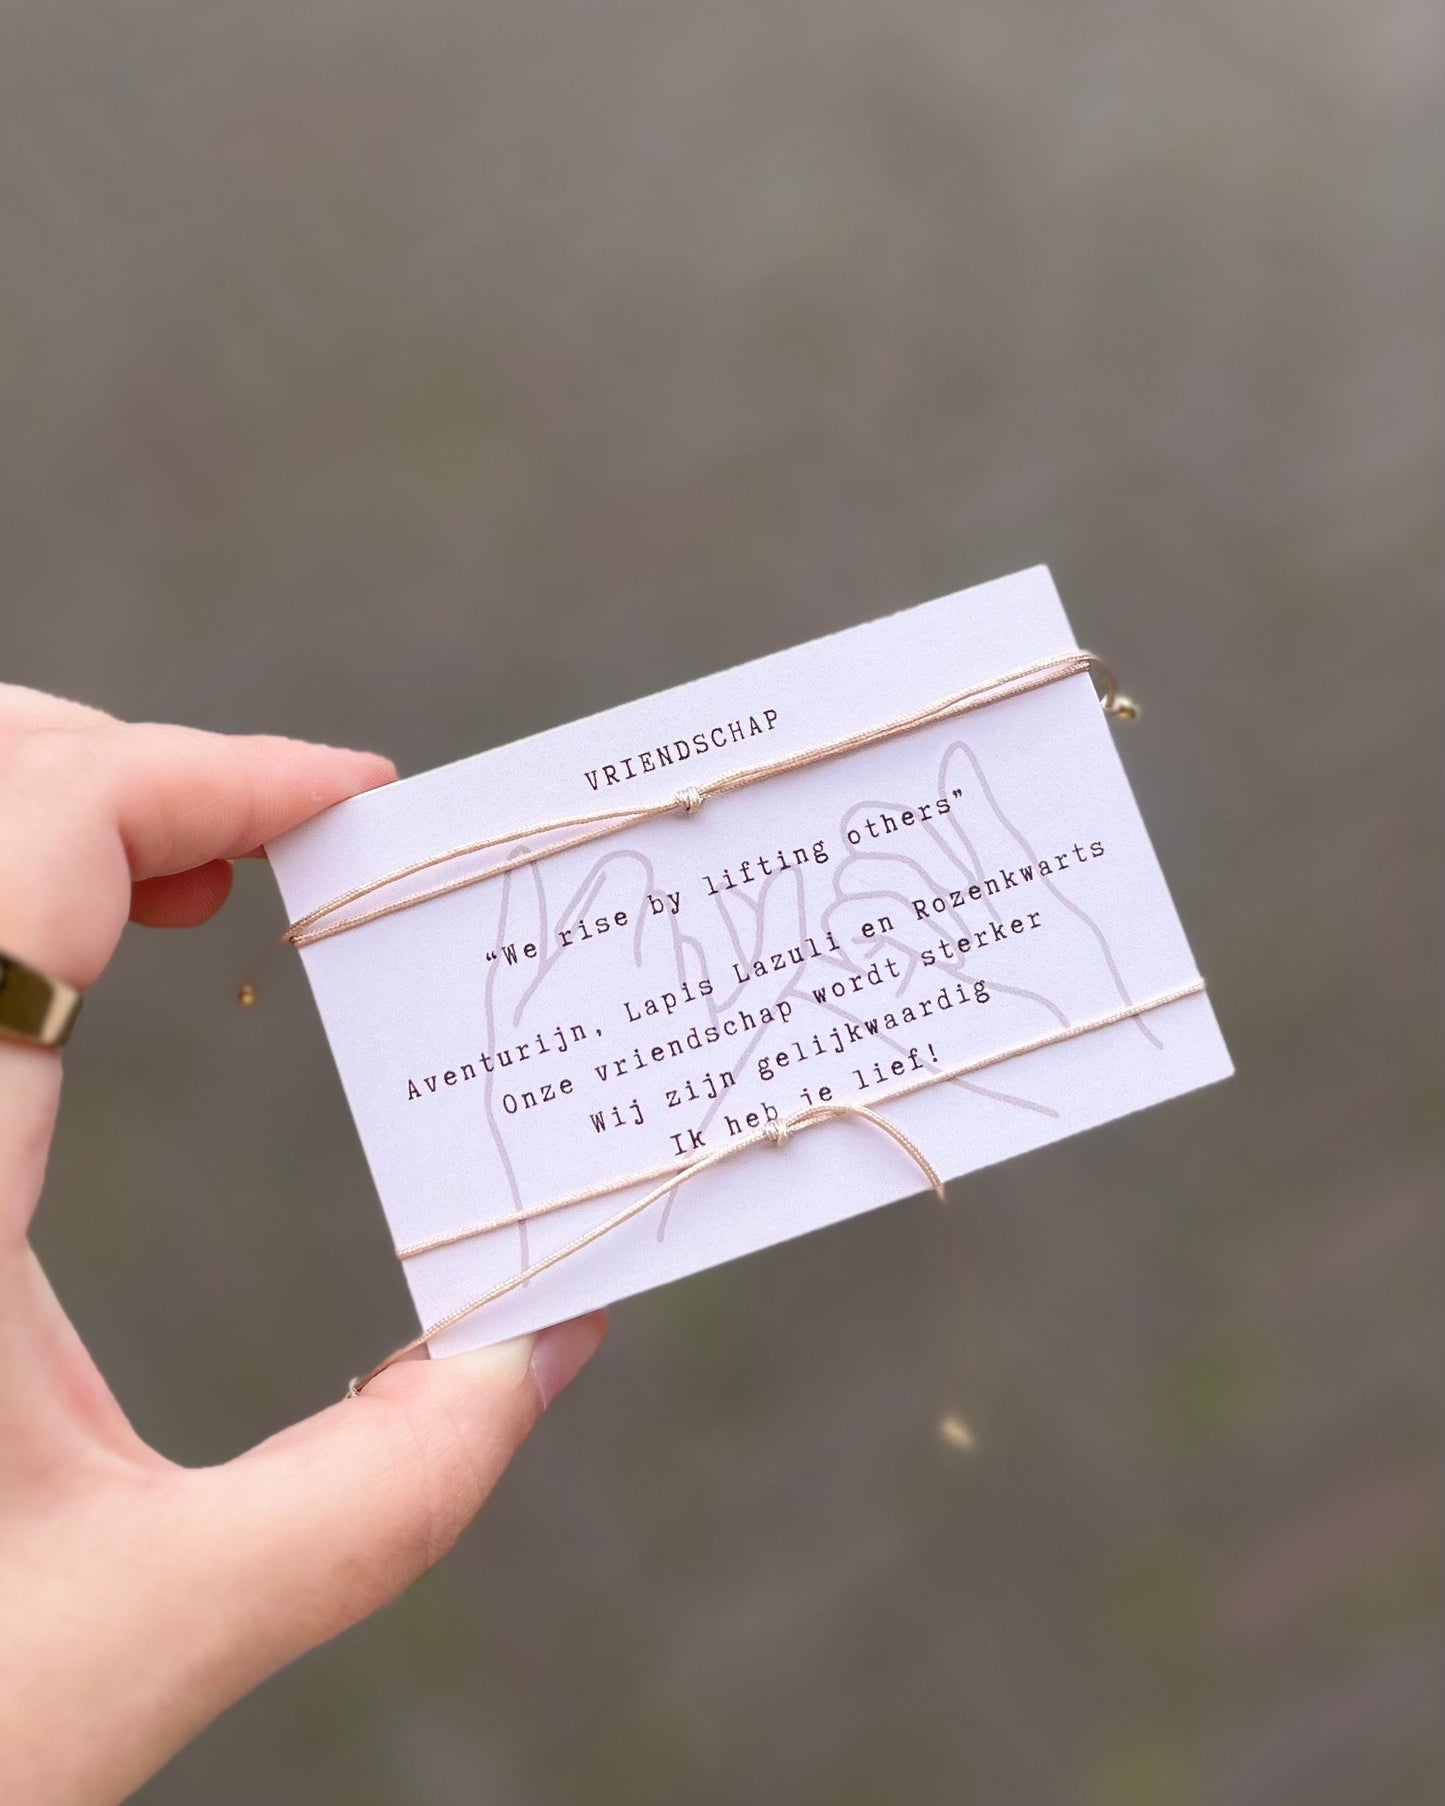 VRIENDSCHAP
“We rise by lifting others”
Aventurijn, Lapis Lazuli en Rozenkwarts
Onze vriendschap wordt sterker
Wij zijn gelijkwaardig
Ik heb je lief!